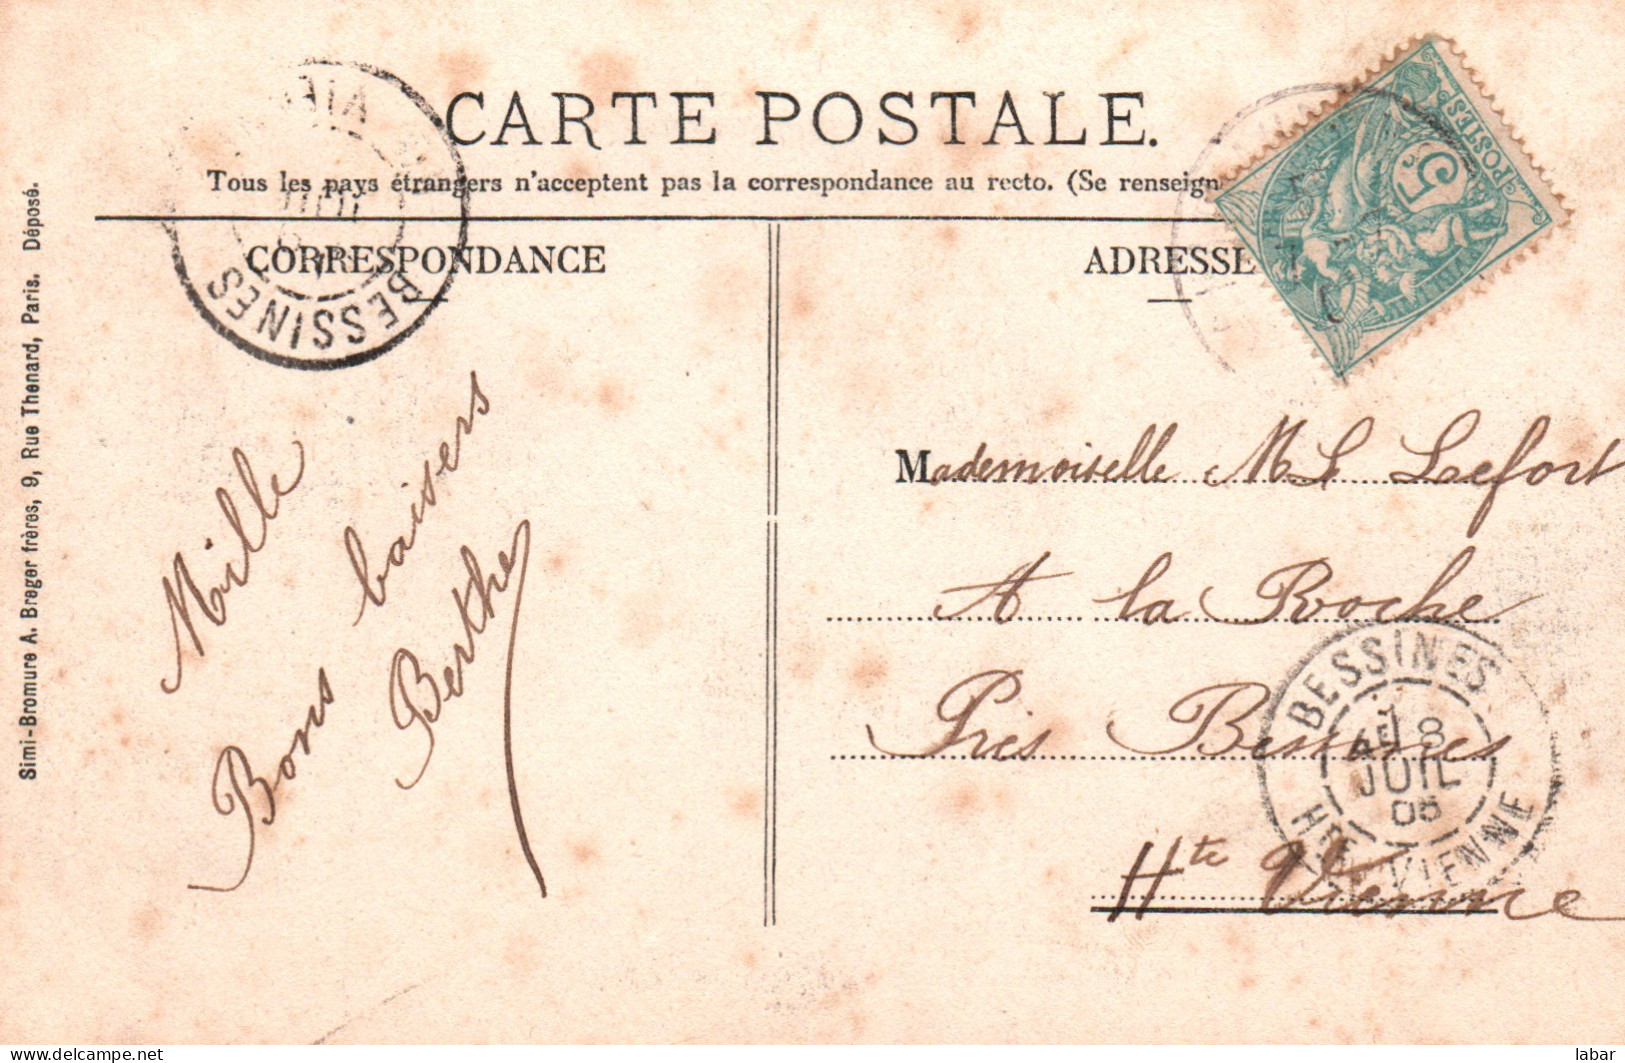 CARTE POSTALE.
Tous les pays étrangers n'acceptent pas la correspondance au recto. (Se renseign
CORRESPONDANCE
ADRESSE
Simi-Bromure A. Breger frères, 9, Rue Thenard, Paris. Déposé.
BESSINES
JUIL
5c
POSTES
Mille
Bons baisers
Berthe
Mademoiselle M L Lefort
A la Roche
Près Bessines
Hte Vienne
BESSINES
18
JUIL
05
HTE VIENNE
delcampe.net
labar